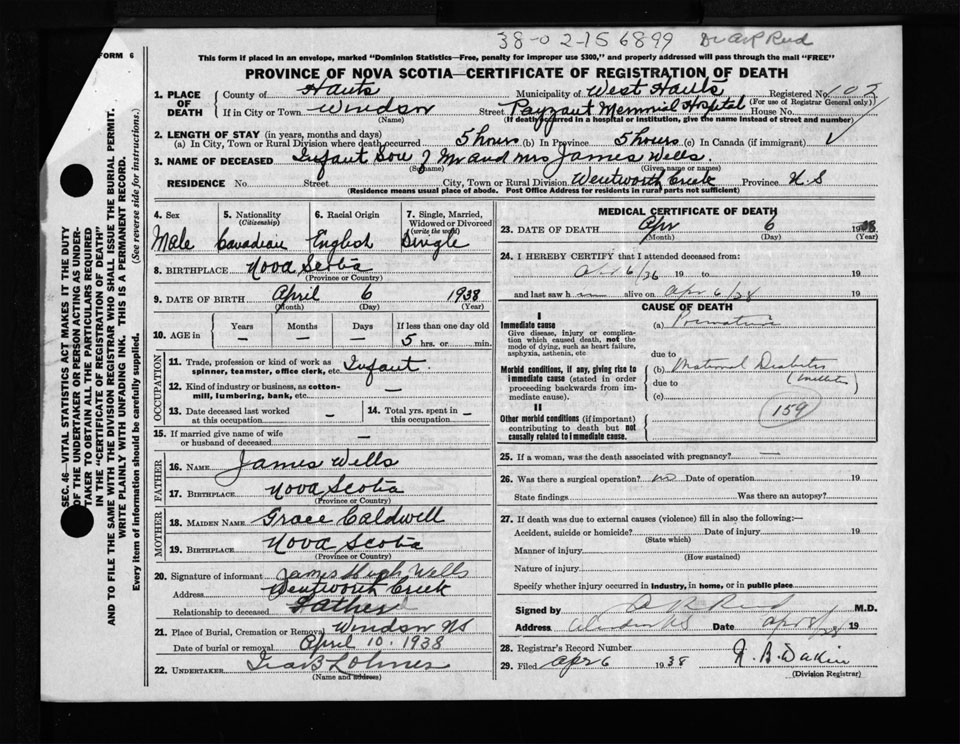 38-0 2-15 6899 Dr A R Reid
FORM 6
This form if placed in an envelope, marked "Dominion Statistics—Free, penalty for improper use $300," and properly addressed will pass through the mail "FREE"
PROVINCE OF NOVA SCOTIA—CERTIFICATE OF REGISTRATION OF DEATH
1. PLACE OF DEATH County of Hants Municipality of West Hants Registered No. 103
If in City or Town Windsor Street Payzant Memorial Hospital House No. (For use of Registrar General only)
(Name) (If death occurred in a hospital or institution, give the name instead of street and number)
2. LENGTH OF STAY (in years, months and days)
(a) In City, Town or Rural Division where death occurred 5 hours (b) In Province 5 hours (c) In Canada (if immigrant)
3. NAME OF DECEASED Infant Son of Mr and Mrs James Wells.
(Surname) (Given name or names)
RESIDENCE No. Street City, Town or Rural Division Wentworth Creek Province N.S
(Residence means usual place of abode. Post Office Address for residents in rural parts not sufficient)
SEC. 46—VITAL STATISTICS ACT MAKES IT THE DUTY
OF THE UNDERTAKER OR PERSON ACTING AS UNDER-
TAKER TO OBTAIN ALL THE PARTICULARS REQUIRED
IN THE "CERTIFICATE OF REGISTRATION OF DEATH"
AND TO FILE THE SAME WITH THE DIVISION REGISTRAR WHO SHALL ISSUE THE BURIAL PERMIT.
WRITE PLAINLY WITH UNFADING INK. THIS IS A PERMANENT RECORD.
Every item of information should be carefully supplied. (See reverse side for instructions.)
4. Sex 5. Nationality (Citizenship) 6. Racial Origin 7. Single, Married, Widowed or Divorced (write the word)
Male Canadian English Single
8. BIRTHPLACE Nova Scotia
(Province or Country)
9. DATE OF BIRTH April 6 1938
(Month) (Day) (Year)
10. AGE in Years Months Days If less than one day old
— — — 5 hrs. or min.
OCCUPATION
11. Trade, profession or kind of work as spinner, teamster, office clerk, etc. Infant.
12. Kind of industry or business, as cotton-mill, lumbering, bank, etc. —
13. Date deceased last worked at this occupation — 14. Total yrs. spent in this occupation —
15. If married give name of wife or husband of deceased —
FATHER
16. NAME James Wells
17. BIRTHPLACE Nova Scotia
(Province or Country)
MOTHER
18. MAIDEN NAME Grace Caldwell
19. BIRTHPLACE Nova Scotia
(Province or Country)
20. Signature of informant James Hugh Wells
Address Wentworth Creek
Relationship to deceased Father
21. Place of Burial, Cremation or Removal Windsor NS
Date of burial or removal April 10. 1938
22. UNDERTAKER
(Name and address)
MEDICAL CERTIFICATE OF DEATH
23. DATE OF DEATH Apr 6 1938
(Month) (Day) (Year)
24. I HEREBY CERTIFY that I attended deceased from:
Apr 6/36 19 to 19
and last saw h im alive on Apr 6/38 19
CAUSE OF DEATH
I
Immediate cause (a) Premature
Give disease, injury or complication which caused death, not the mode of dying, such as heart failure, asphyxia, asthenia, etc
due to
Morbid conditions, if any, giving rise to immediate cause (stated in order proceeding backwards from immediate cause).
(b) Maternal Diabetes
due to
(c)
II
159
Other morbid conditions (if important) contributing to death but not causally related to immediate cause.
25. If a woman, was the death associated with pregnancy? —
26. Was there a surgical operation? no Date of operation 19
State findings Was there an autopsy?
27. If death was due to external causes (violence) fill in also the following:—
Accident, suicide or homicide? Date of injury 19
(State which)
Manner of injury
(How sustained)
Nature of injury
Specify whether injury occurred in industry, in home, or in public place
Signed by A R Reid M.D.
Address Windsor NS Date Apr 8/38 19
28. Registrar's Record Number
29. Filed Apr 6 1938
(Division Registrar)